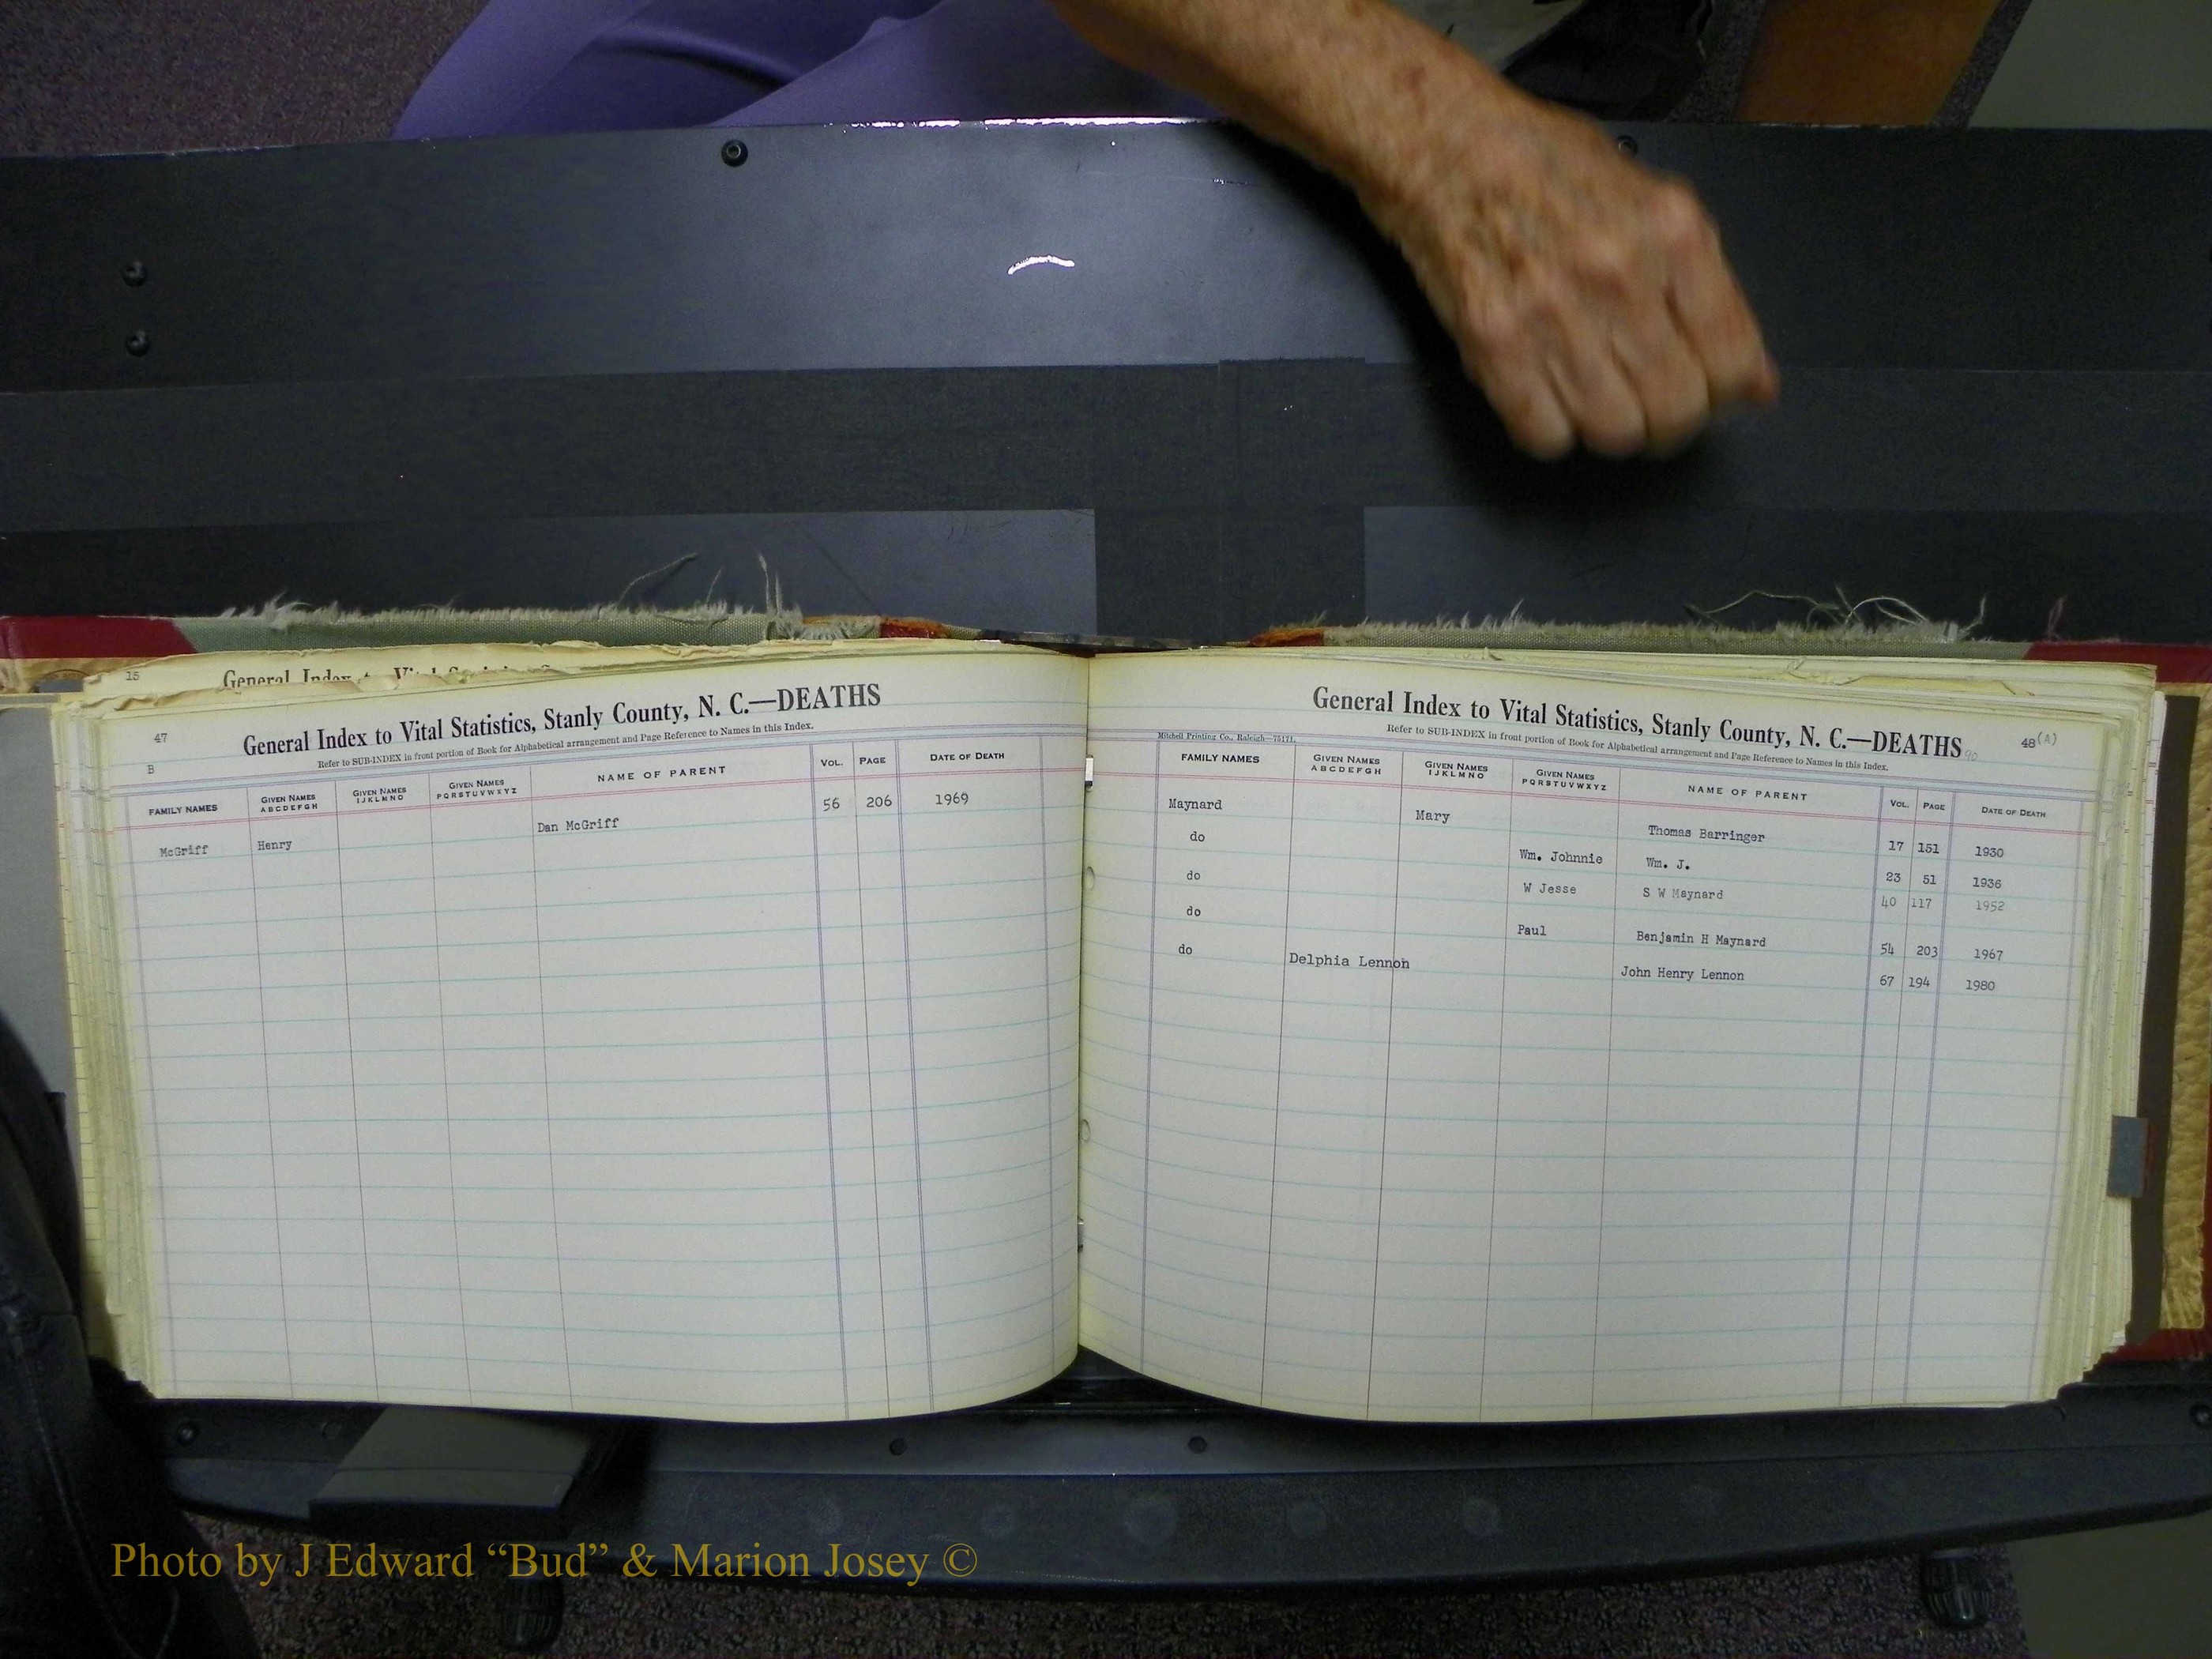 15
General Index to Vital Statistics
47
B
General Index to Vital Statistics, Stanly County, N. C.—DEATHS
Refer to SUB-INDEX in front portion of Book for Alphabetical arrangement and Page Reference to Names in this Index.
FAMILY NAMES GIVEN NAMES ABCDEFGH GIVEN NAMES IJKLMNO GIVEN NAMES PQRSTUVWXYZ NAME OF PARENT VOL. PAGE DATE OF DEATH
McGriff Henry Dan McGriff 56 206 1969
General Index to Vital Statistics, Stanly County, N. C.—DEATHS
90
48(A)
Mitchell Printing Co., Raleigh—75171.
Refer to SUB-INDEX in front portion of Book for Alphabetical arrangement and Page Reference to Names in this Index.
FAMILY NAMES GIVEN NAMES ABCDEFGH GIVEN NAMES IJKLMNO GIVEN NAMES PQRSTUVWXYZ NAME OF PARENT VOL. PAGE DATE OF DEATH
Maynard Mary Thomas Barringer 17 151 1930
do Wm. Johnnie Wm. J. 23 51 1936
do W Jesse S W Maynard 40 117 1952
do Paul Benjamin H Maynard 54 203 1967
do Delphia Lennon John Henry Lennon 67 194 1980
Photo by J Edward “Bud” & Marion Josey ©